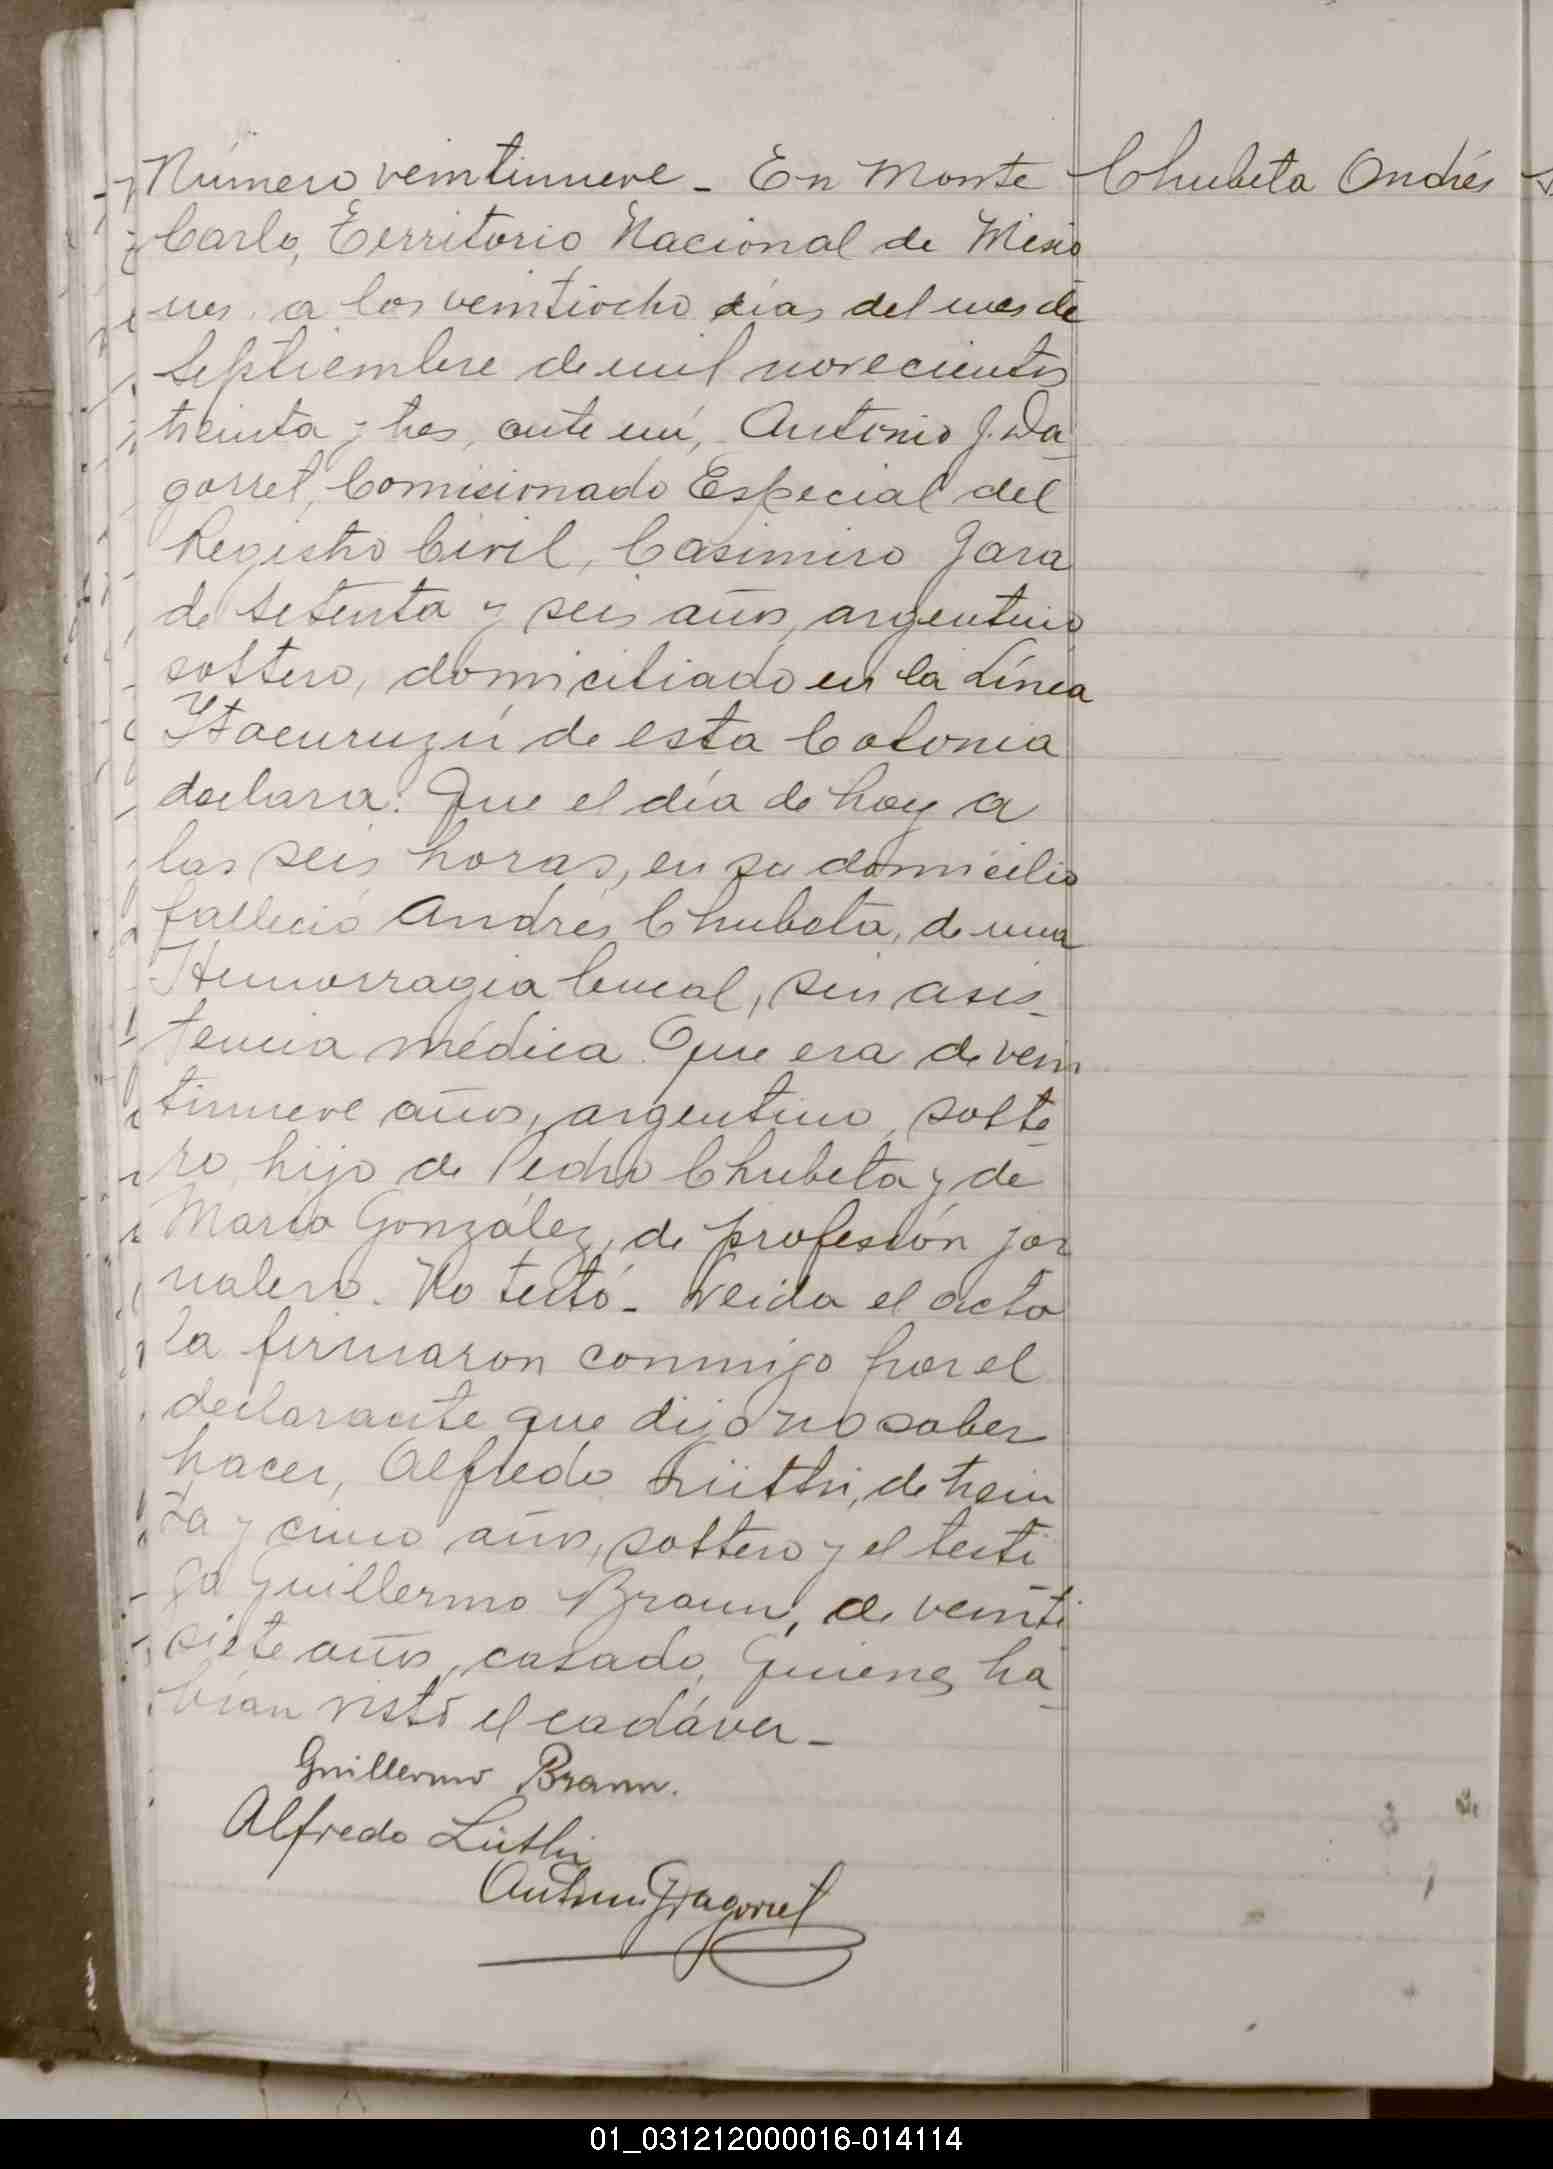 Número veintinueve - En Monte
Chubeta Andrés
Carlo, Territorio Nacional de Misio
nes, a los veintiocho días del mes de
Septiembre de mil novecientos
treinta y tres, ante mí, Antonio J. Da_
gorret, Comisionado Especial del
Registro Civil, Casimiro Jara
de setenta y seis años, argentino
soltero, domiciliado en la Línea
Itacuruzú de esta Colonia
declara: Que el día de hoy a
las seis horas, en su domicilio
falleció Andrés Chubeta, de una
Hemorragia bucal, sin asis_
tencia médica. Que era de vein
tinueve años, argentino, solte_
ro, hijo de Pedro Chubeta y de
María González, de profesión jor
nalero. No testó - Leída el acta
la firmaron conmigo por el
declarante que dijo no saber
hacer, Alfredo Lüthi, de trein
ta y cinco años, soltero y el testi
go Guillermo Braun, de veinti
siete años, casado, Quienes ha_
bían visto el cadáver -
Guillermo Braun.
Alfredo Lüthi
Antonio J Dagorret
01_031212000016-014114